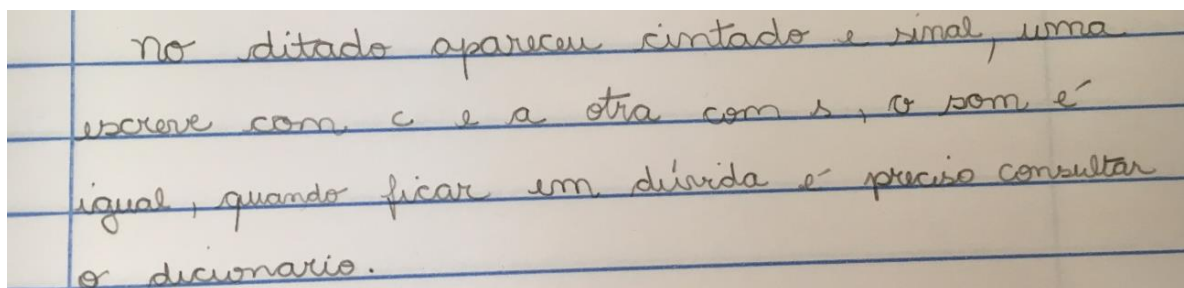 no ditado apareceu cintado e sinal, uma
escreve com c e a otra com s, o som é
igual, quando ficar em dúvida é preciso consultar
o dicionario.